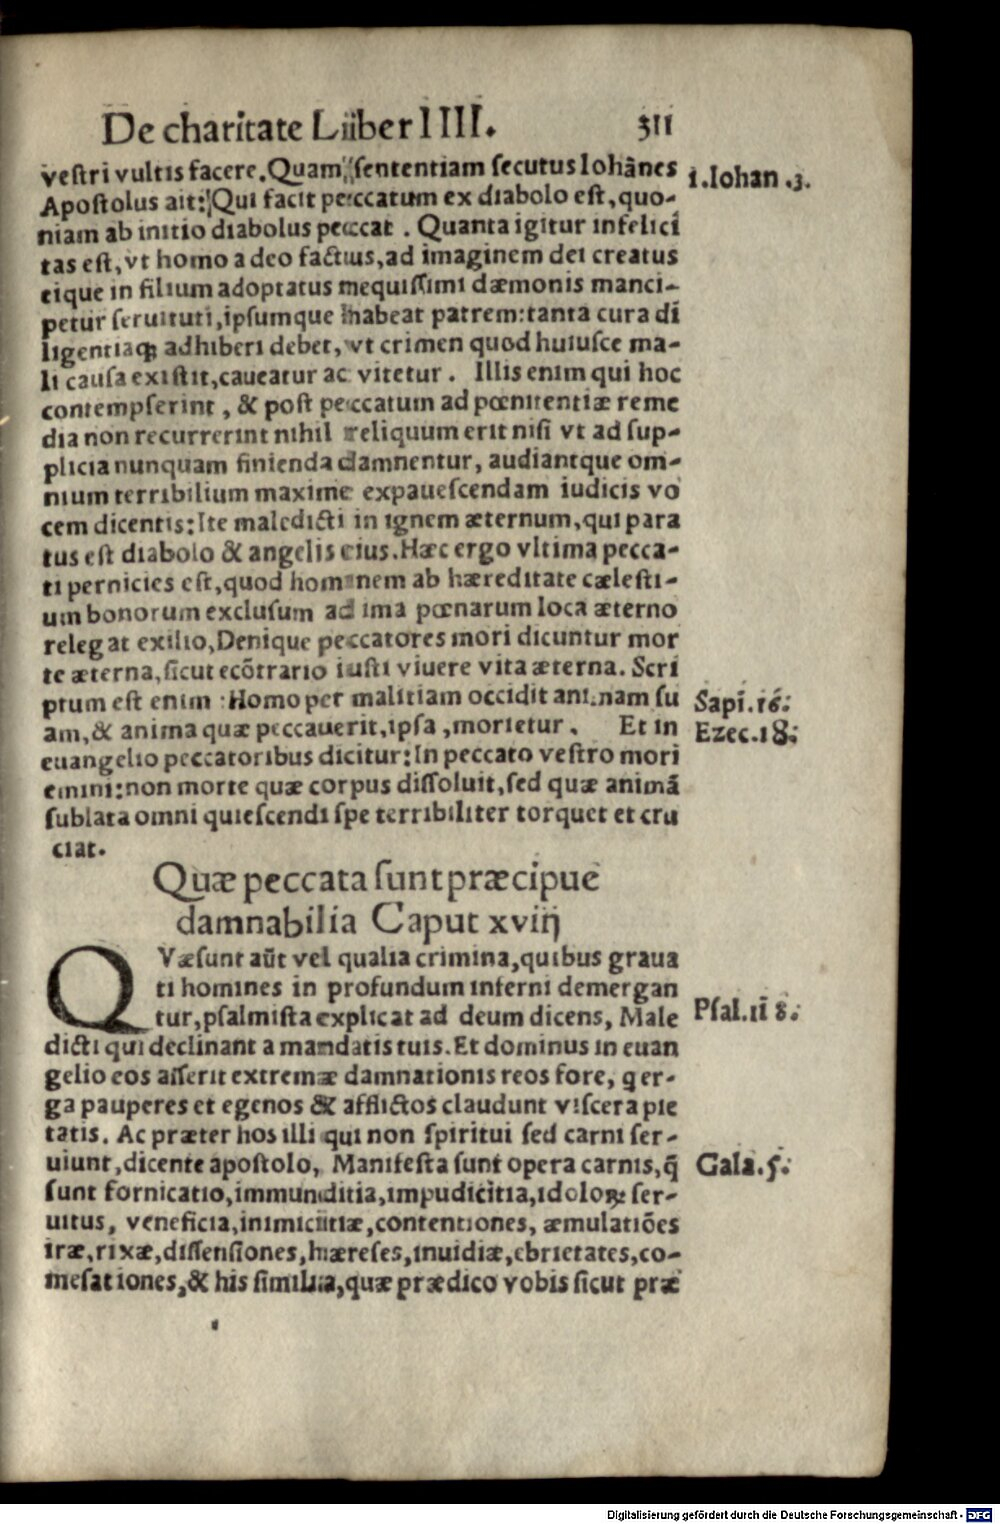 De charitate Liiber IIII. 311
vestri vultis facere. Quam sententiam secutus Iohānes
1. Iohan. 3.
Apostolus ait: Qui facit peccatum ex diabolo est, quo-
niam ab initio diabolus peccat. Quanta igitur infelici
tas est, vt homo a deo factus, ad imaginem dei creatus
eique in filium adoptatus nequissimi dæmonis manci-
petur seruituti, ipsumque habeat patrem: tanta cura di
ligentiaqȝ adhiberi debet, vt crimen quod huiusce ma-
li causa existit, caueatur ac vitetur. Illis enim qui hoc
contempserint, & post peccatum ad pœnitentiæ reme
dia non recurrerint nihil reliquum erit nisi vt ad sup-
plicia nunquam finienda damnentur, audiantque om-
nium terribilium maxime expauescendam iudicis vo
cem dicentis: Ite maledicti in ignem æternum, qui para
tus est diabolo & angelis eius. Hæc ergo vltima pecca-
ti pernicies est, quod hominem ab hæreditate cælesti-
um bonorum exclusum ad ima pœnarum loca æterno
relegat exilio, Denique peccatores mori dicuntur mor
te æterna, sicut ecōtrario iusti viuere vita æterna. Scri
ptum est enim: Homo per malitiam occidit animam su
Sapi. 16:
am, & anima quæ peccauerit, ipsa, morietur. Et in
Ezec. 18:
euangelio peccatoribus dicitur: In peccato vestro mori
emini: non morte quæ corpus dissoluit, sed quæ animā
sublata omni quiescendi spe terribiliter torquet et cru
ciat.
Quæ peccata sunt præcipue
damnabilia Caput xviij
QVæ sunt aūt vel qualia crimina, quibus graua
ti homines in profundum inferni demergan
tur, psalmista explicat ad deum dicens, Male
Psal. 118:
dicti qui declinant a mandatis tuis. Et dominus in euan
gelio eos asserit extremæ damnationis reos fore, q er-
ga pauperes et egenos & afflictos claudunt viscera pie
tatis. Ac præter hos illi qui non spiritui sed carni ser-
uiunt, dicente apostolo, Manifesta sunt opera carnis, q̄
Gala. 5:
sunt fornicatio, immunditia, impudicitia, idoloꝝ ser-
uitus, veneficia, inimicitiæ, contentiones, æmulatiōes
iræ, rixæ, dissensiones, hæreses, inuidiæ, ebrietates, co-
mesationes, & his similia, quæ prædico vobis sicut præ
Digitalisierung gefördert durch die Deutsche Forschungsgemeinschaft - DFG